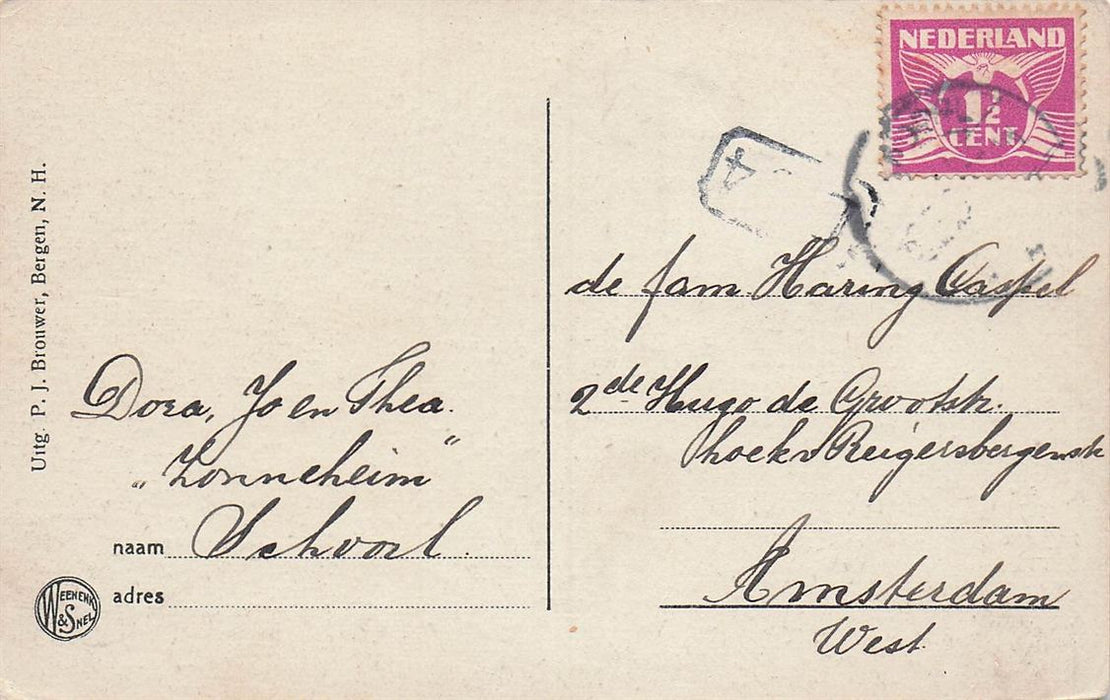 Uitg. P. J. Brouwer, Bergen, N. H.
Dora, Jo en Thea.
„Zonneheim"
Schoorl.
naam
adres
WEENENK & SNEL
NEDERLAND
1½
CENT
4
de fam Haring Caspel
2de Hugo de Grootstr.
hoek v Reigersbergenstr
Amsterdam
West